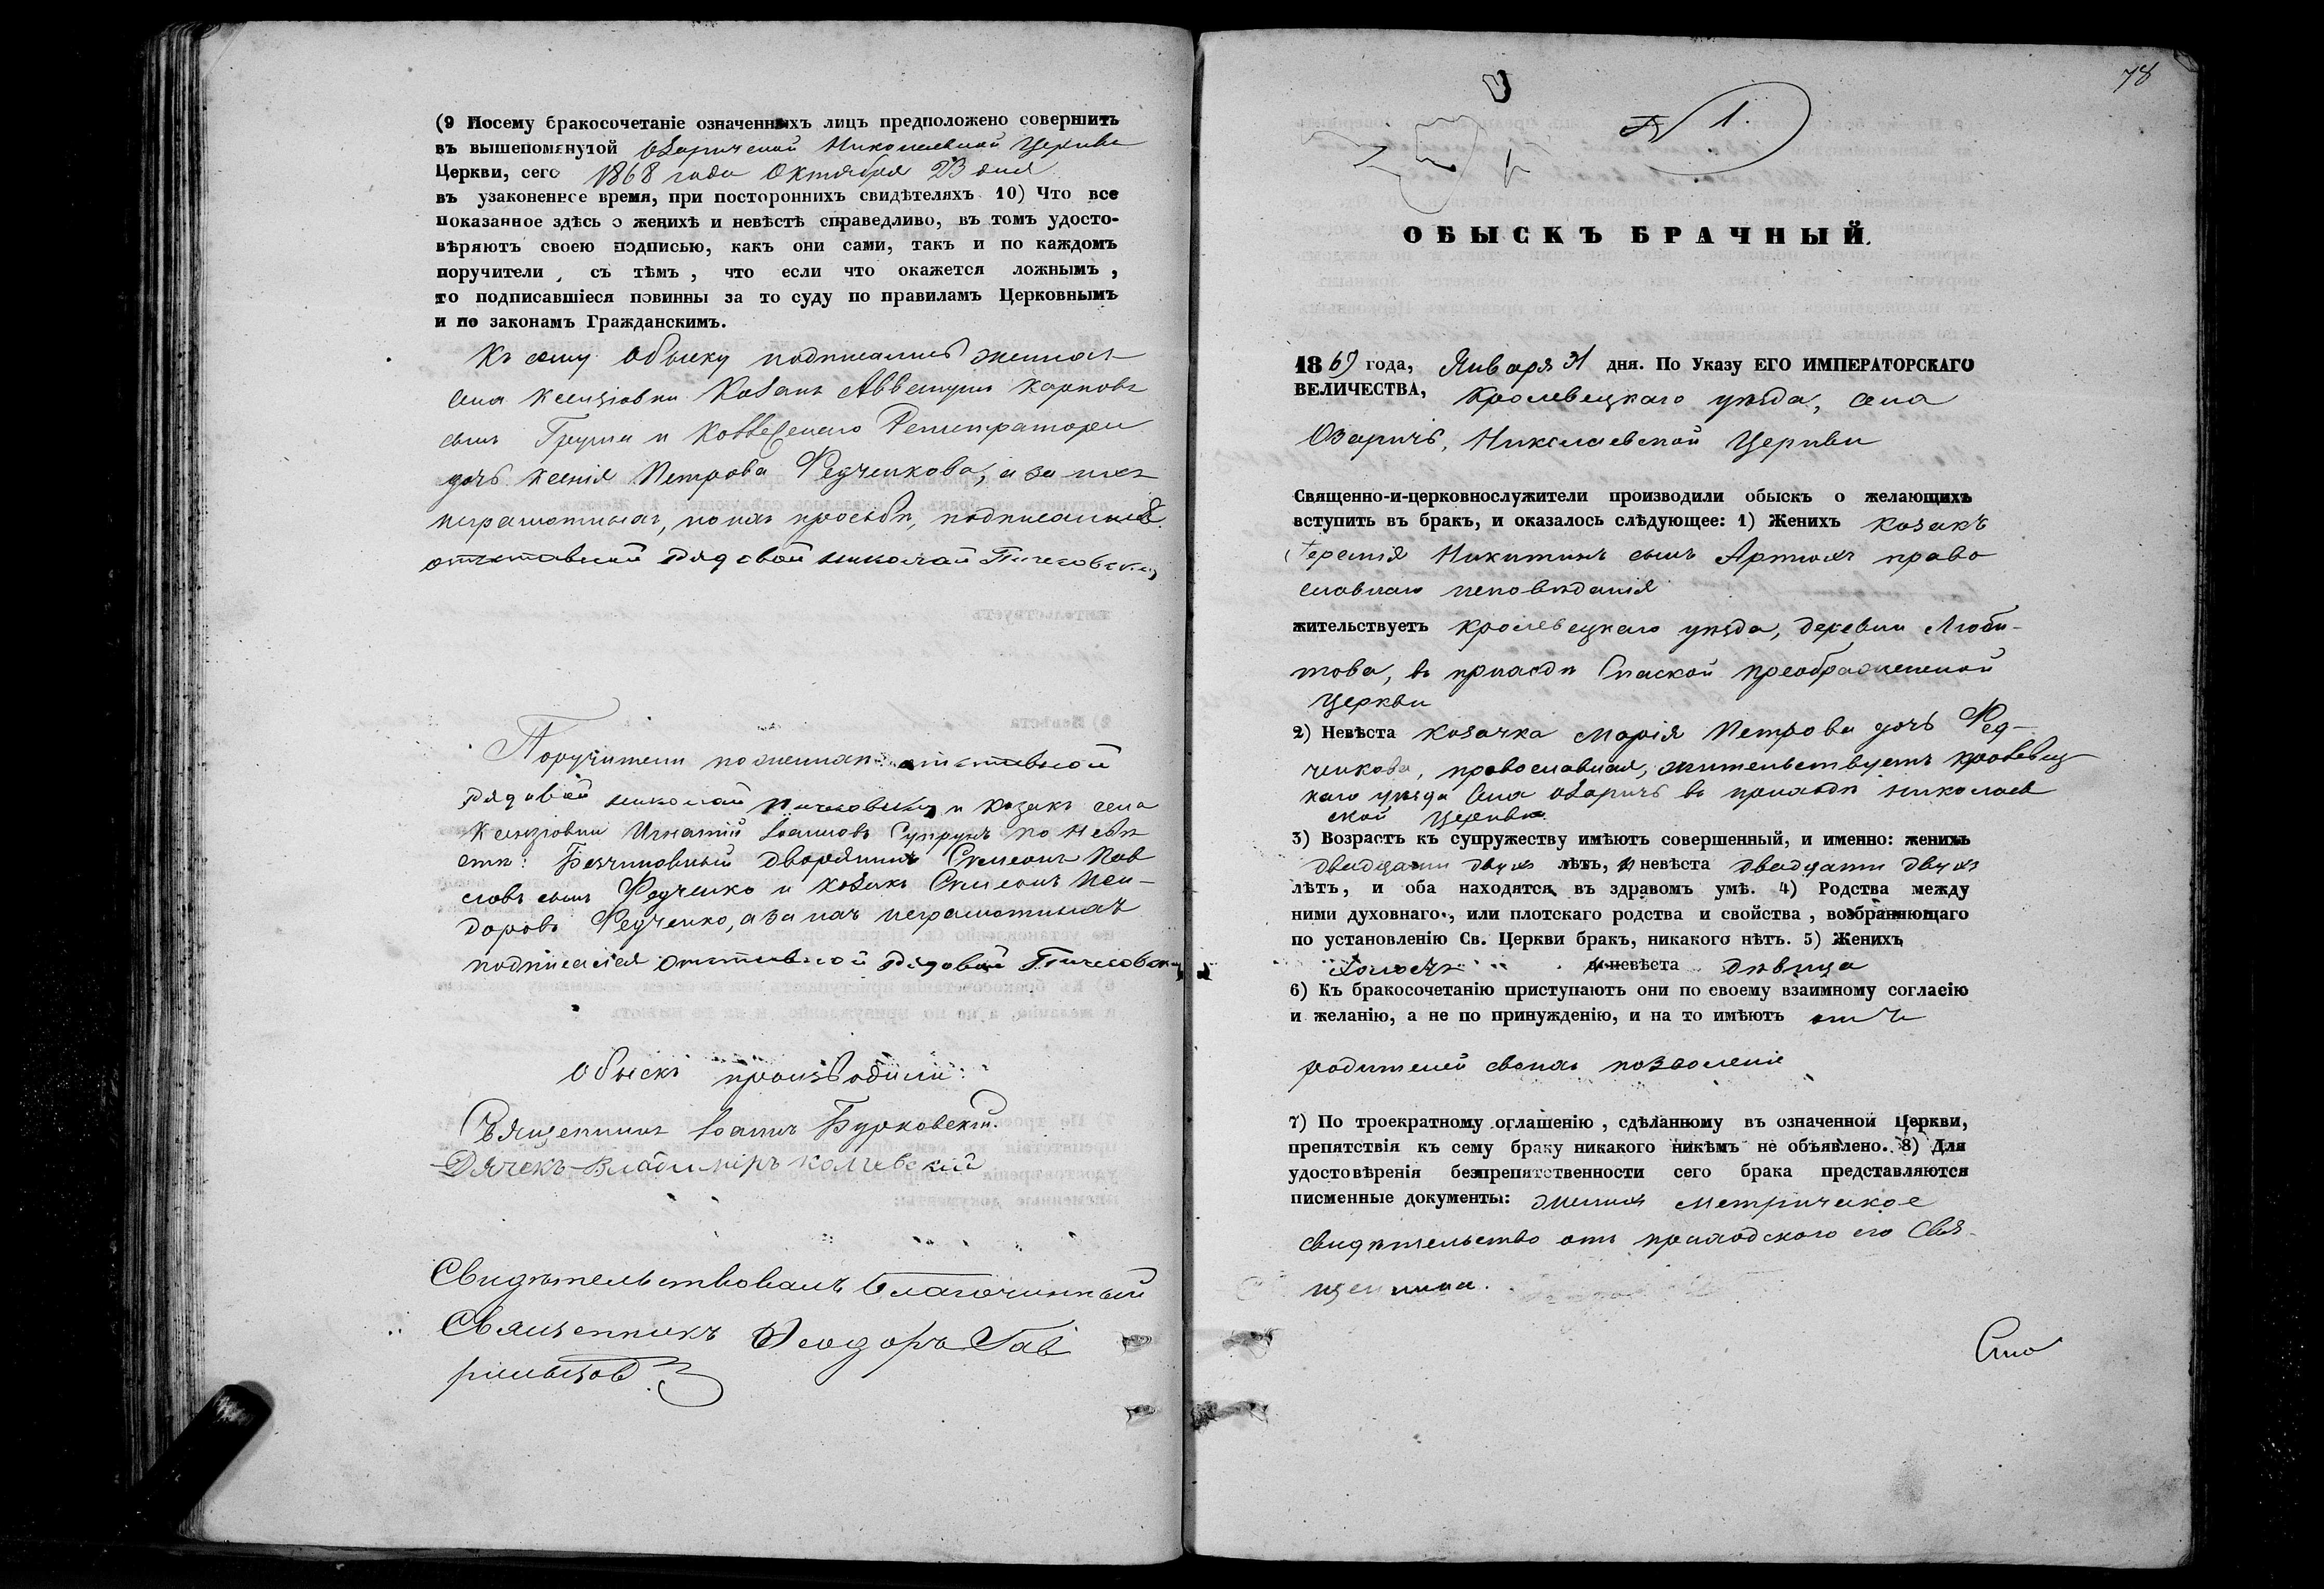 (9 Посему бракосочетаніе означенныхъ лицъ предположено совершить
въ вышепомянутой Озаричской Николаевской Церкви
Церкви, сего 1868 года Октября 23 дня
въ узаконенное время, при постороннихъ свидѣтеляхъ 10) Что все
показанное здѣсь о женихѣ и невѣстѣ справедливо, въ томъ удосто-
вѣряютъ своею подписью, какъ они сами, такъ и по каждомъ
поручители, съ тѣмъ, что если что окажется ложнымъ,
то подписавшіеся повинны за то суду по правиламъ Церковнымъ
и по законамъ Гражданскимъ.
Къ сему обыску подписались женихъ
села Ксензовки Козакъ Карповъ
сынъ и Коллежскаго Регистратора
дочь Ксенія Петрова Федченкова, а за ихъ
неграмотныхъ, по ихъ просьбѣ, подписался
отставной рядовой Николай
Поручители по женихѣ: отставной
рядовой Николай и Козакъ села
Ксензовки Игнатій Іоанновъ Супрунъ по невѣ
стѣ: Безчиновный дворянинъ Симеонъ Пав
ловъ сынъ Федченко и Козакъ Симеонъ Иси-
доровъ Федченко, а за нихъ неграмотныхъ
подписался отставной рядовой
Обыскъ производили:
Священникъ Іоаннъ Бурковскій.
Дячекъ Владиміръ
Свидѣтельствовалъ Благочинный
Священникъ Ѳеодоръ Гав
78
№ 1.
ОБЫСКЪ БРАЧНЫЙ.
1869 года, Января 31 дня. По Указу ЕГО ИМПЕРАТОРСКАГО
ВЕЛИЧЕСТВА, Кролевецкаго уѣзда, села
Озаричъ, Николаевской Церкви
Священно-и-церковнослужители производили обыскъ о желающихъ
вступить въ бракъ, и оказалось слѣдующее: 1) Женихъ Козакъ
Никитинъ сынъ Артюхъ право
славнаго исповѣданія
жительствуетъ Кролевецкаго уѣзда, деревни Люби-
това, въ приходѣ Спаской преображенской
Церкви
2) Невѣста козачка Марія Петрова дочь Фед-
ченкова, православная, жительствуетъ Кролевец
каго уѣзда села Озаричъ въ приходѣ Николаев
ской Церкви
3) Возрастъ къ супружеству имѣютъ совершенный, и именно: женихъ
двадцати двухъ лѣтъ, и невѣста двадцати двухъ
лѣтъ, и оба находятся въ здравомъ умѣ. 4) Родства между
ними духовнаго, или плотскаго родства и свойства, возбраняющаго
по установленію Св. Церкви бракъ, никакого нѣтъ. 5) Женихъ
холостъ и невѣста дѣвица
6) Къ бракосочетанію приступаютъ они по своему взаимному согласію
и желанію, а не по принужденію, и на то имѣютъ отъ
родителей своихъ позволеніе
7) По троекратному оглашенію, сдѣланному въ означенной Церкви,
препятствія къ сему браку никакого никѣмъ не объявлено. 8) Для
удостовѣренія безпрепятственности сего брака представляются
писменные документы: женихъ метрическое
свидѣтельство отъ приходского его Свя-
щенника.